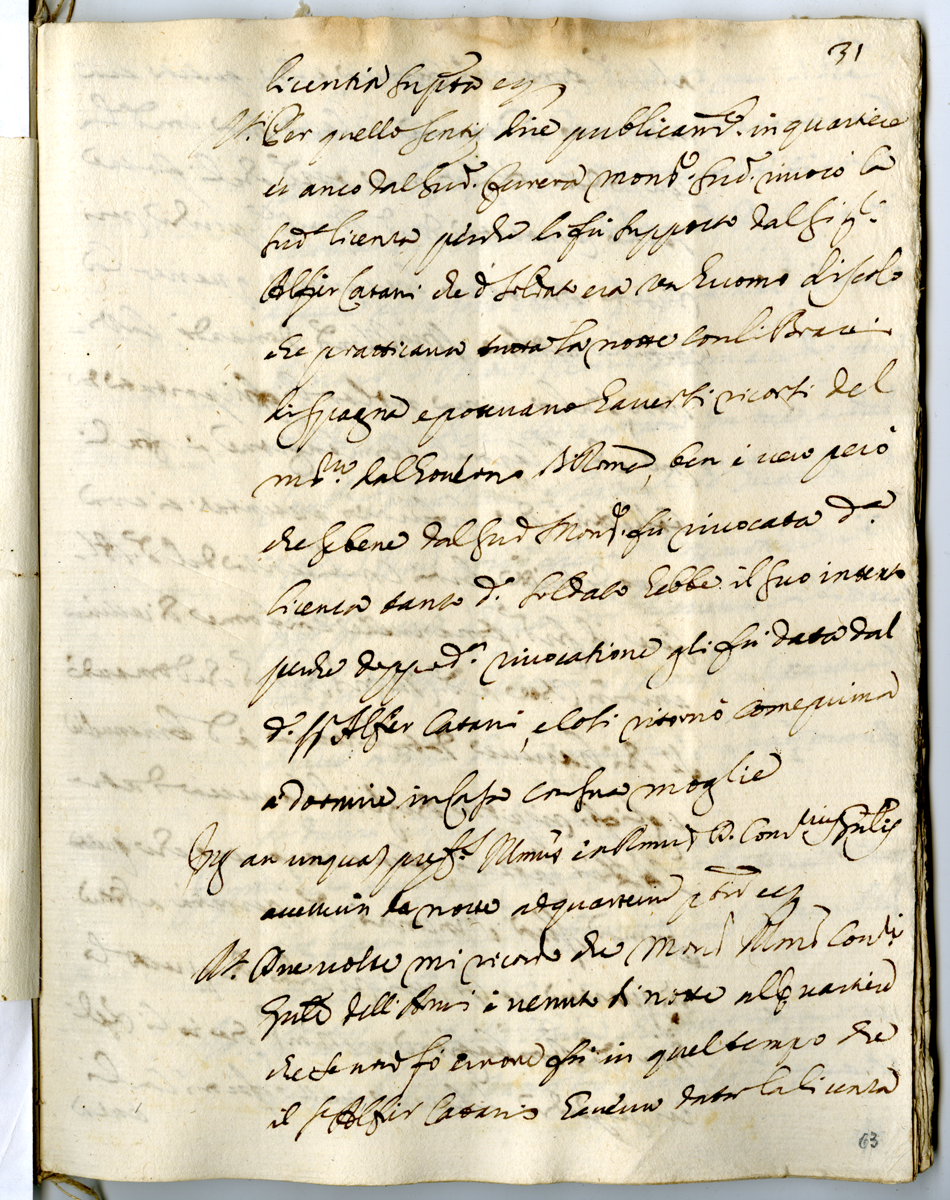 31
licentia supta etc
Rt. Per quello sentij dire publicamte. in quartiere
et anco dal sud. Monsr. sud. rivocò la
sudta licenza perche li fù supposto dal sigr.
Alfier Catani che do soldato era un huomo discolo
che pratticava tutta la notte con li Bravi
di Spagna e potevano haversi ricorsi del
dal Governo di Roma, ben è vero però
che se bene dal sud Monsr. fù rivocata da
licenza tanto do. soldato hebbe il suo intento
perche doppo da. rivocatione gli fù data dal
do. sr Alfier Catani, e così ritornò come prima
à dormire in casa con sua moglie
Intus an unquam Illmus et Rmus D. Comrius Gnlis
accesserit de nocte ad quarterium etc
Rt. Due volte mi ricordo che Monsr Illmo Comrio
Gnle dell'Armi è venuto di notte al quartiere
che se non fò errore fù in quel tempo che
il sr Alfier Catanio haveva dato la licenza
63